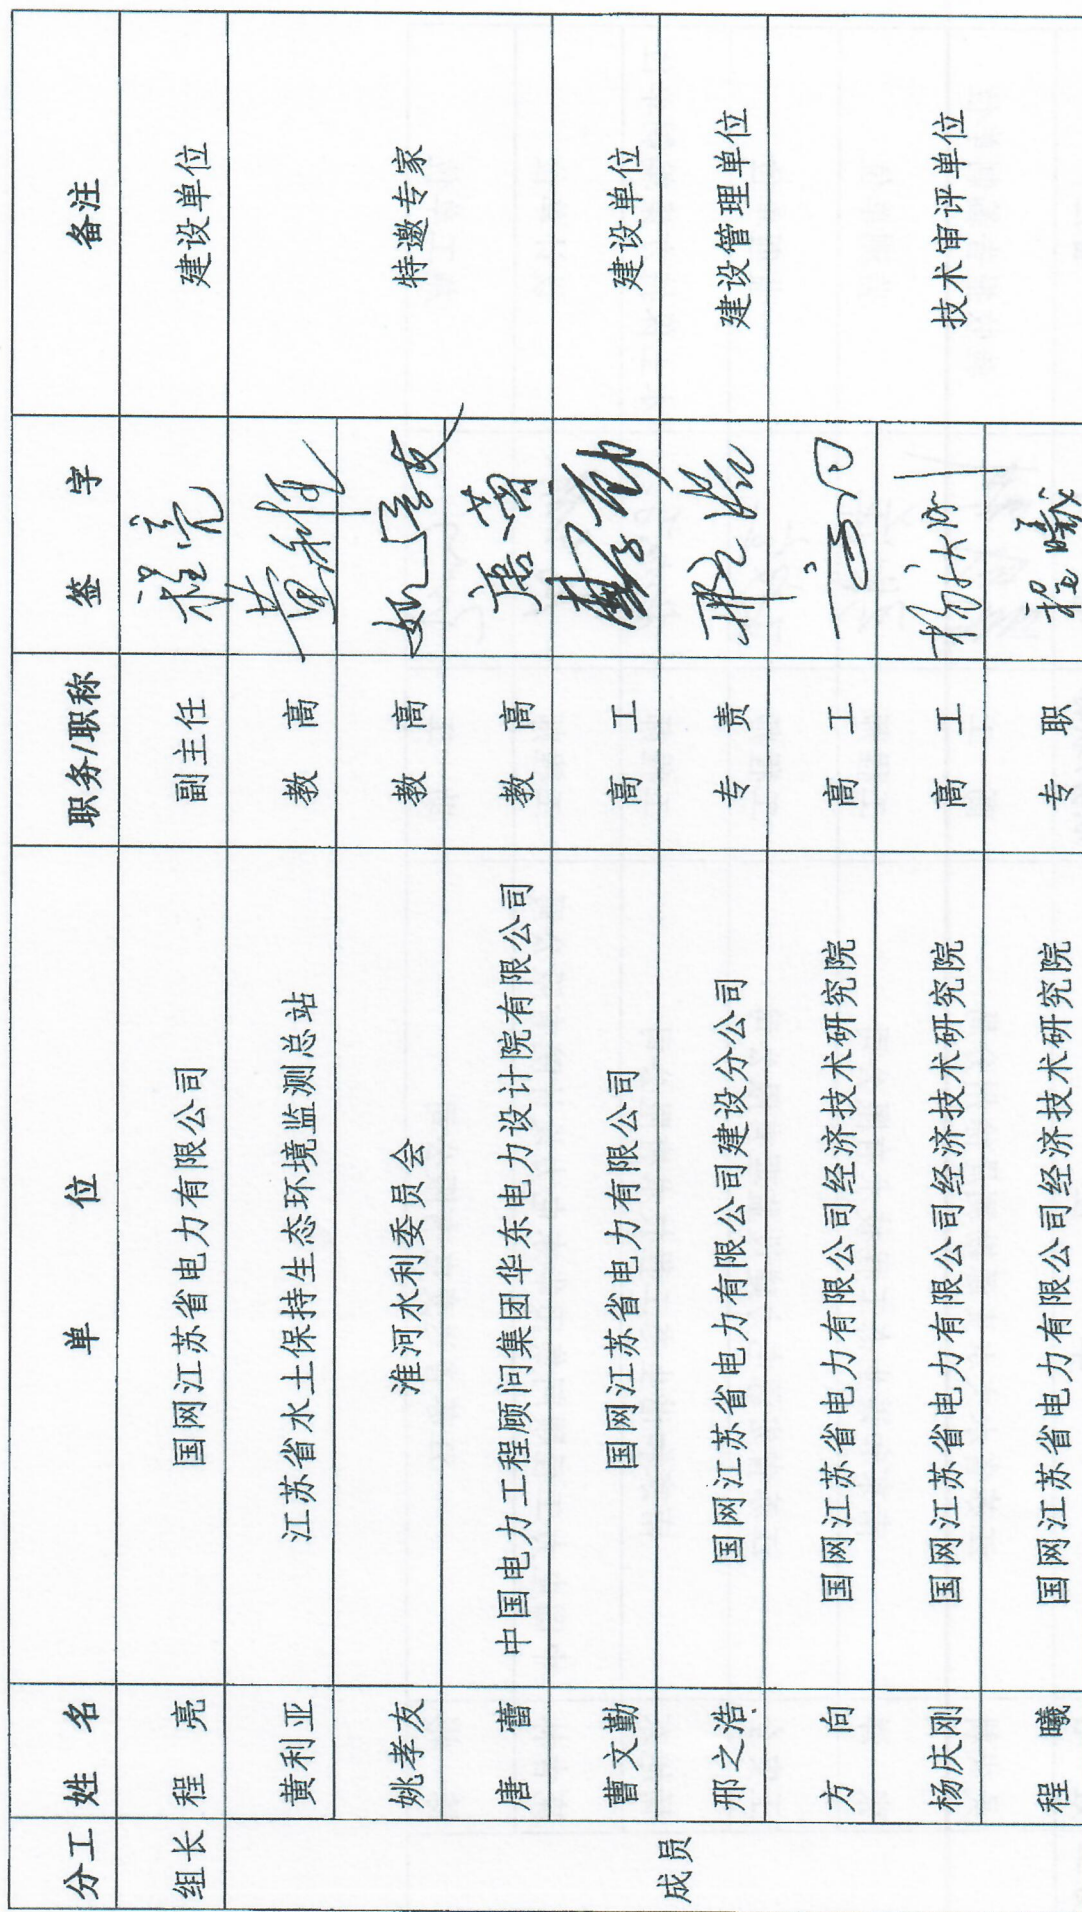 分工 姓 名 单 位 职务/职称 签 字 备注
组长 程 亮 国网江苏省电力有限公司 副主任 程亮 建设单位
成员 黄利亚 江苏省水土保持生态环境监测总站 教 高 特邀专家
姚孝友 淮河水利委员会 教 高 姚孝友
唐 蕾 中国电力工程顾问集团华东电力设计院有限公司 教 高 唐蕾
曹文勤 国网江苏省电力有限公司 高 工 建设单位
邢之浩 国网江苏省电力有限公司建设分公司 专 责 建设管理单位
方 向 国网江苏省电力有限公司经济技术研究院 高 工 技术审评单位
杨庆刚 国网江苏省电力有限公司经济技术研究院 高 工
程 曦 国网江苏省电力有限公司经济技术研究院 专 职 程曦